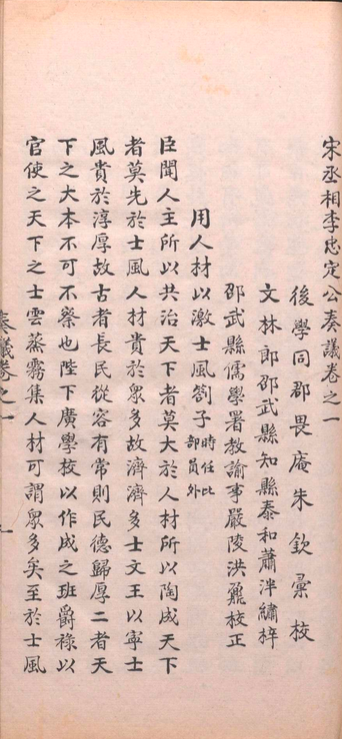 宋丞相李忠定公奏議卷之一
後學同郡畏庵朱欽彙校
文林郎邵武縣知縣泰和蕭泮繡梓
邵武縣儒學署教諭事嚴陵洪鼐校正
用人材以激士風劄子時任比部員外
臣聞人主所以共治天下者莫大於人材所以陶成天下
者莫先於士風人材貴於眾多故濟濟多士文王以寧士
風貴於淳厚故古者長民從容有常則民德歸厚二者天
下之大本不可不察也陛下廣學校以作成之班爵祿以
官使之天下之士雲蒸霧集人材可謂眾多矣至於士風
奏議卷之一
一